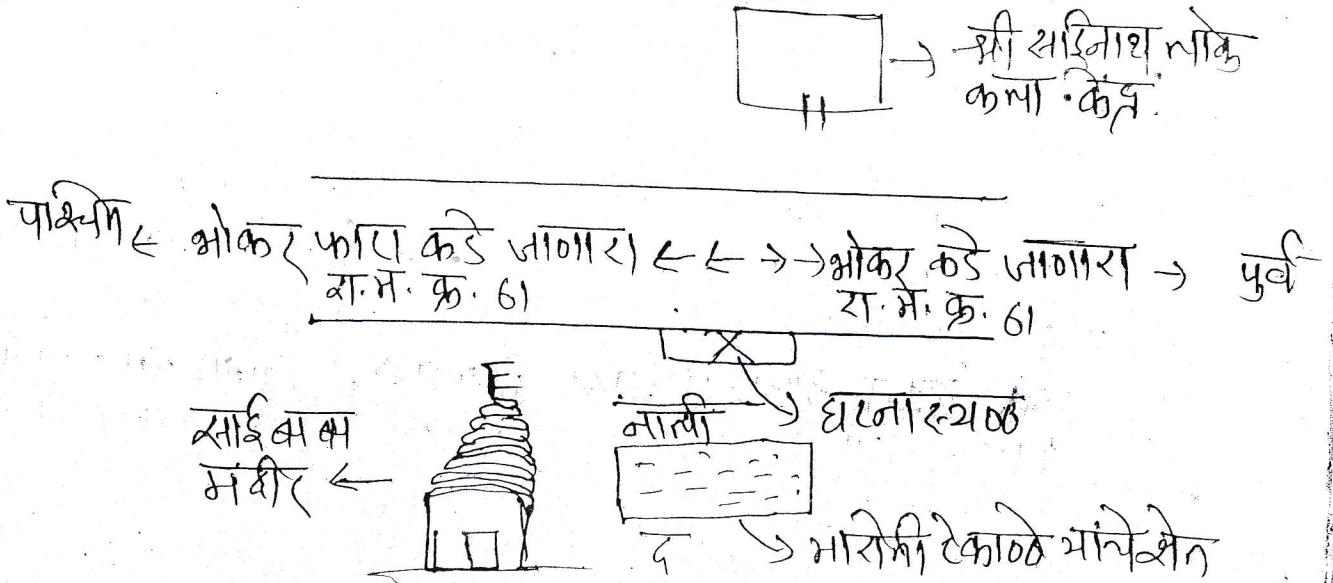 श्री साईनाथ लोक
कला केंद्र.
पश्चिम ← भोकर फाटा कडे जाणारा ← ← → → भोकर कडे जाणारा → पुर्व
रा.म. क्र. 61 रा.म. क्र. 61
साईबाबा
मंदीर ←
नाली
घटनास्थळ
द
मारोती टेकाळे यांचे शेत